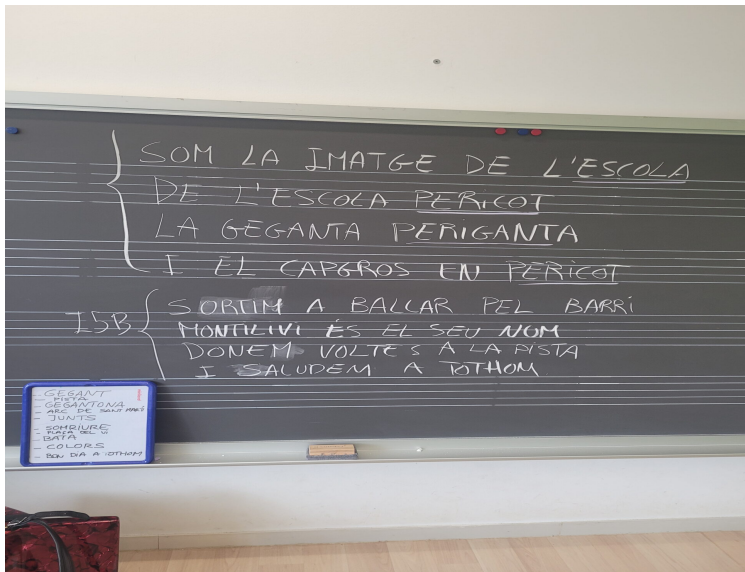 SOM LA IMATGE DE L'ESCOLA
DE L'ESCOLA PERICOT
LA GEGANTA PERIGANTA
I EL CAPGROS EN PERICOT
I5B
SORTIM A BALLAR PEL BARRI
MONTILIVI ÉS EL SEU NOM
DONEM VOLTES A LA PISTA
I SALUDEM A TOTHOM
- GEGANT
- PISTA
- GEGANTONA
- ARC DE SANT MARTÍ
- JUNTS
- SOMRIURE
- PLAÇA DEL VI
- BATA
- COLORS
- BON DIA A TOTHOM